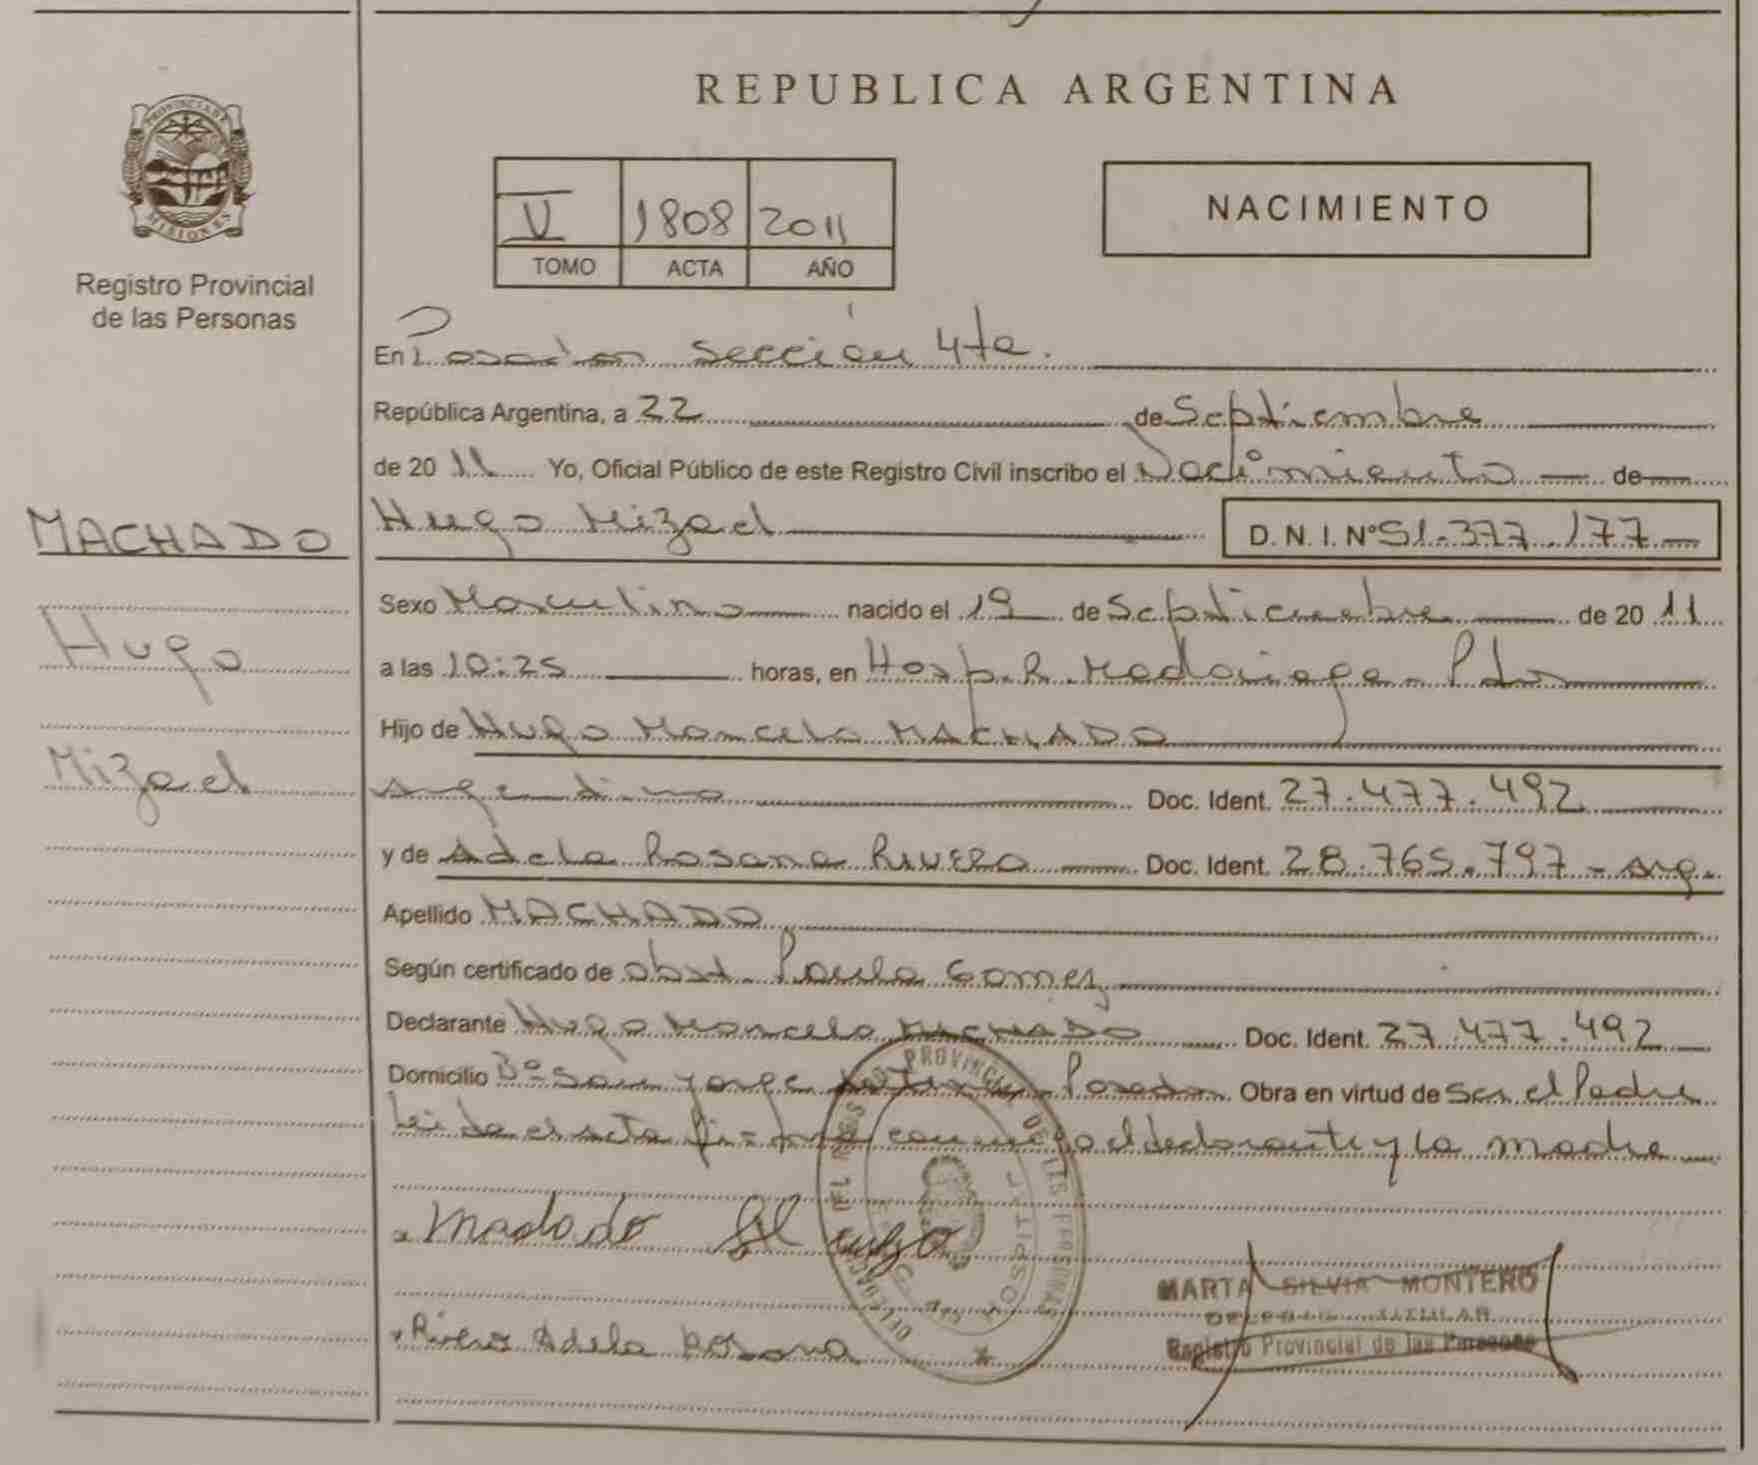 REPUBLICA ARGENTINA
PROVINCIA DE
MISIONES
Registro Provincial
de las Personas
V 1808 2011
TOMO ACTA AÑO
NACIMIENTO
En Posadas sección 4ta.
República Argentina, a 22 de Septiembre
de 2011 Yo, Oficial Público de este Registro Civil inscribo el Nacimiento de
MACHADO
Hugo Mizael D. N. I. Nº 51.377.177
Sexo Masculino nacido el 19 de Septiembre de 2011
Hugo
a las 10:25 horas, en Hosp. R. Madariaga - Pdas
Hijo de Hugo Marcelo MACHADO
Mizael
Argentino Doc. Ident. 27.477.492
y de Adela Rosana RIVERO Doc. Ident. 28.765.797 - Arg.
Apellido MACHADO
Según certificado de obst. Paula Gomez
Declarante Hugo Marcelo MACHADO Doc. Ident. 27.477.492
Domicilio Bº San Jorge Posadas Obra en virtud de ser el Padre
Leida el acta firma conmigo el declarante y la madre
Rivero Adela Rosana
MARTA SILVIA MONTERO
DELEGADA TITULAR
Registro Provincial de las Personas